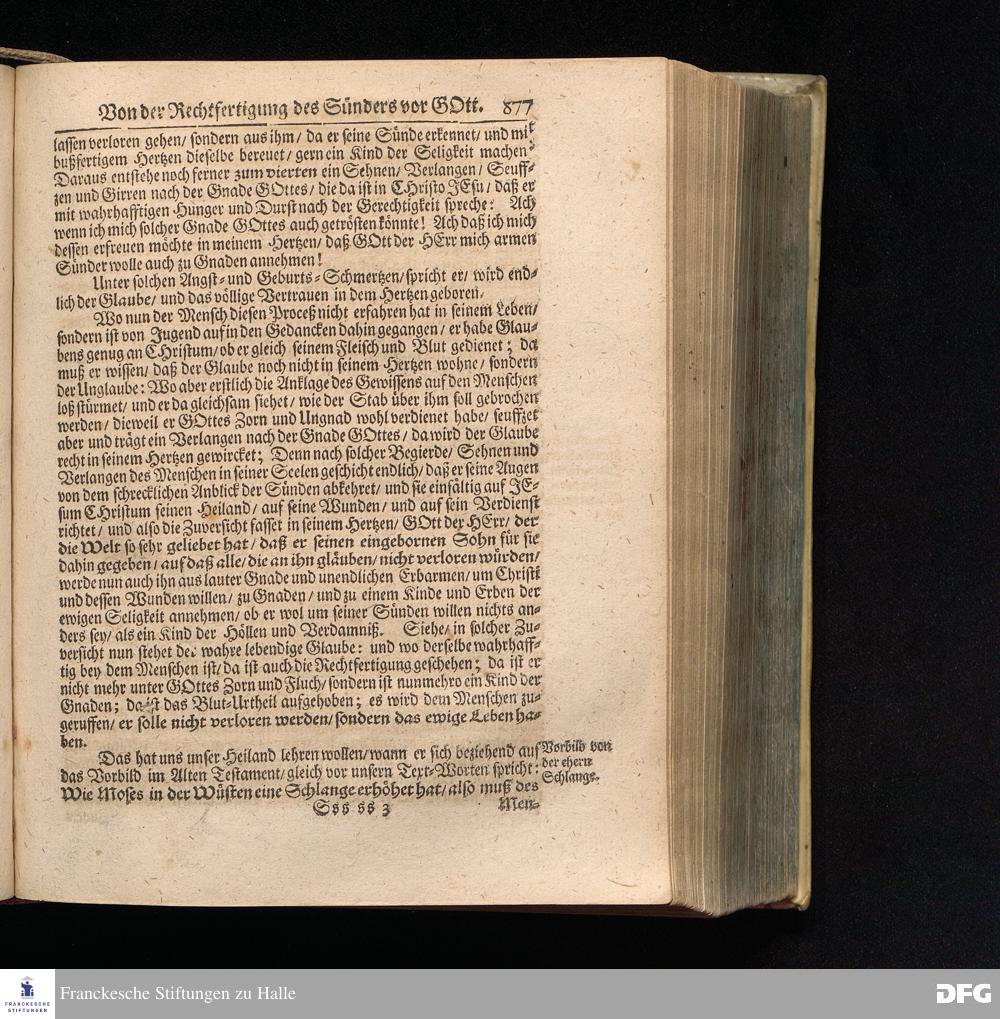 Von der Rechtfertigung des Sünders vor GOtt. 877
lassen verloren gehen/ sondern aus ihm/ da er seine Sünde erkennet/ und mit
bußfertigem Hertzen dieselbe bereuet/ gern ein Kind der Seligkeit machen.
Daraus entstehe noch ferner zum vierten ein Sehnen/ Verlangen/ Seuff-
zen und Girren nach der Gnade GOttes/ die da ist in CHristo JEsu/ daß er
mit wahrhafftigen Hunger und Durst nach der Gerechtigkeit spreche: Ach
wenn ich mich solcher Gnade GOttes auch getrösten könnte! Ach daß ich mich
dessen erfreuen möchte in meinem Hertzen/ daß GOtt der HErr mich armen
Sünder wolle auch zu Gnaden annehmen!
Unter solchen Angst- und Geburts-Schmertzen/ spricht er/ wird end-
lich der Glaube/ und das völlige Vertrauen in dem Hertzen geboren.
Wo nun der Mensch diesen Proceß nicht erfahren hat in seinem Leben/
sondern ist von Jugend auf in den Gedancken dahin gegangen/ er habe Glau-
bens genug an CHristum/ ob er gleich seinem Fleisch und Blut gedienet; da
muß er wissen/ daß der Glaube noch nicht in seinem Hertzen wohne/ sondern
der Unglaube: Wo aber erstlich die Anklage des Gewissens auf den Menschen
loß stürmet/ und er da gleichsam siehet/ wie der Stab über ihm soll gebrochen
werden/ dieweil er GOttes Zorn und Ungnad wohl verdienet habe/ seuffzet
aber und trägt ein Verlangen nach der Gnade GOttes/ da wird der Glaube
recht in seinem Hertzen gewircket; Denn nach solcher Begierde/ Sehnen und
Verlangen des Menschen in seiner Seelen geschicht endlich/ daß er seine Augen
von dem schrecklichen Anblick der Sünden abkehret/ und sie einfältig auf JE-
sum CHristum seinen Heiland/ auf seine Wunden/ und auf sein Verdienst
richtet/ und also die Zuversicht fasset in seinem Hertzen/ GOtt der HErr/ der
die Welt so sehr geliebet hat/ daß er seinen eingebornen Sohn für sie
dahin gegeben/ auf daß alle/ die an ihn gläuben/ nicht verloren würden/
werde nun auch ihn aus lauter Gnade und unendlichen Erbarmen/ um Christi
und dessen Wunden willen/ zu Gnaden/ und zu einem Kinde und Erben der
ewigen Seligkeit annehmen/ ob er wol um seiner Sünden willen nichts an-
ders sey/ als ein Kind der Höllen und Verdamniß. Siehe/ in solcher Zu-
versicht nun stehet der wahre lebendige Glaube: und wo derselbe wahrhaff-
tig bey dem Menschen ist/ da ist auch die Rechtfertigung geschehen; da ist er
nicht mehr unter GOttes Zorn und Fluch/ sondern ist nunmehro ein Kind der
Gnaden; da ist das Blut-Urtheil aufgehoben; es wird dem Menschen zu-
geruffen/ er solle nicht verloren werden/ sondern das ewige Leben ha-
ben.
Das hat uns unser Heiland lehren wollen/ wann er sich beziehend auf
das Vorbild im Alten Testament/ gleich vor unsern Text-Worten spricht:
Wie Moses in der Wüsten eine Schlange erhöhet hat/ also muß des
Vorbild von
der ehern
Schlange.
Sss ss 3 Men-
FRANCKESCHE
STIFTUNGEN
Franckesche Stiftungen zu Halle
DFG